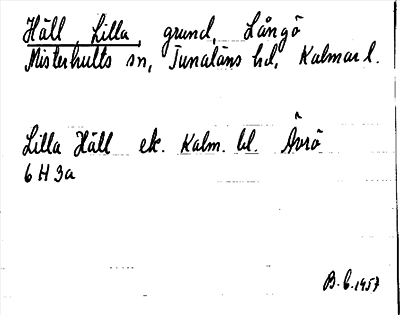 Häll, Lilla, grund, Långö
Misterhults sn, Tunaläns hd, Kalmar l.
Lilla Häll ek. Kalm. bl. Ävrö
6 H 3a
B. C. 1957